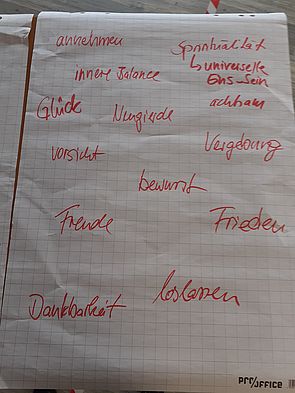 annehmen
Spiritualität
↳ universelle
Eins-Sein
innere Balance
achtsam
Glück
Neugierde
Vergebung
Vorsicht
bewusst
Freude
Frieden
loslassen
Dankbarkeit
PRO/OFFICE